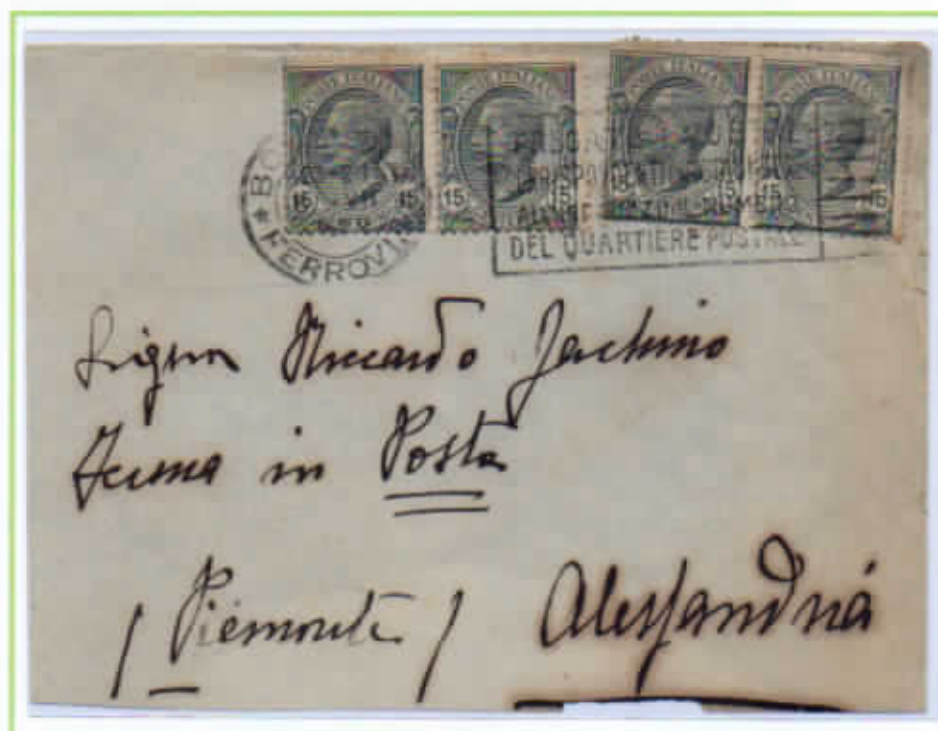 POSTE ITALIANE POSTE ITALIANE POSTE ITALIANE POSTE ITALIANE
15 15 15 15 15 15 15
FERROVIA
DEL QUARTIERE POSTALE
Signor Riccardo Jachino
Fermo in Posta
/ Piemonte / Alessandria